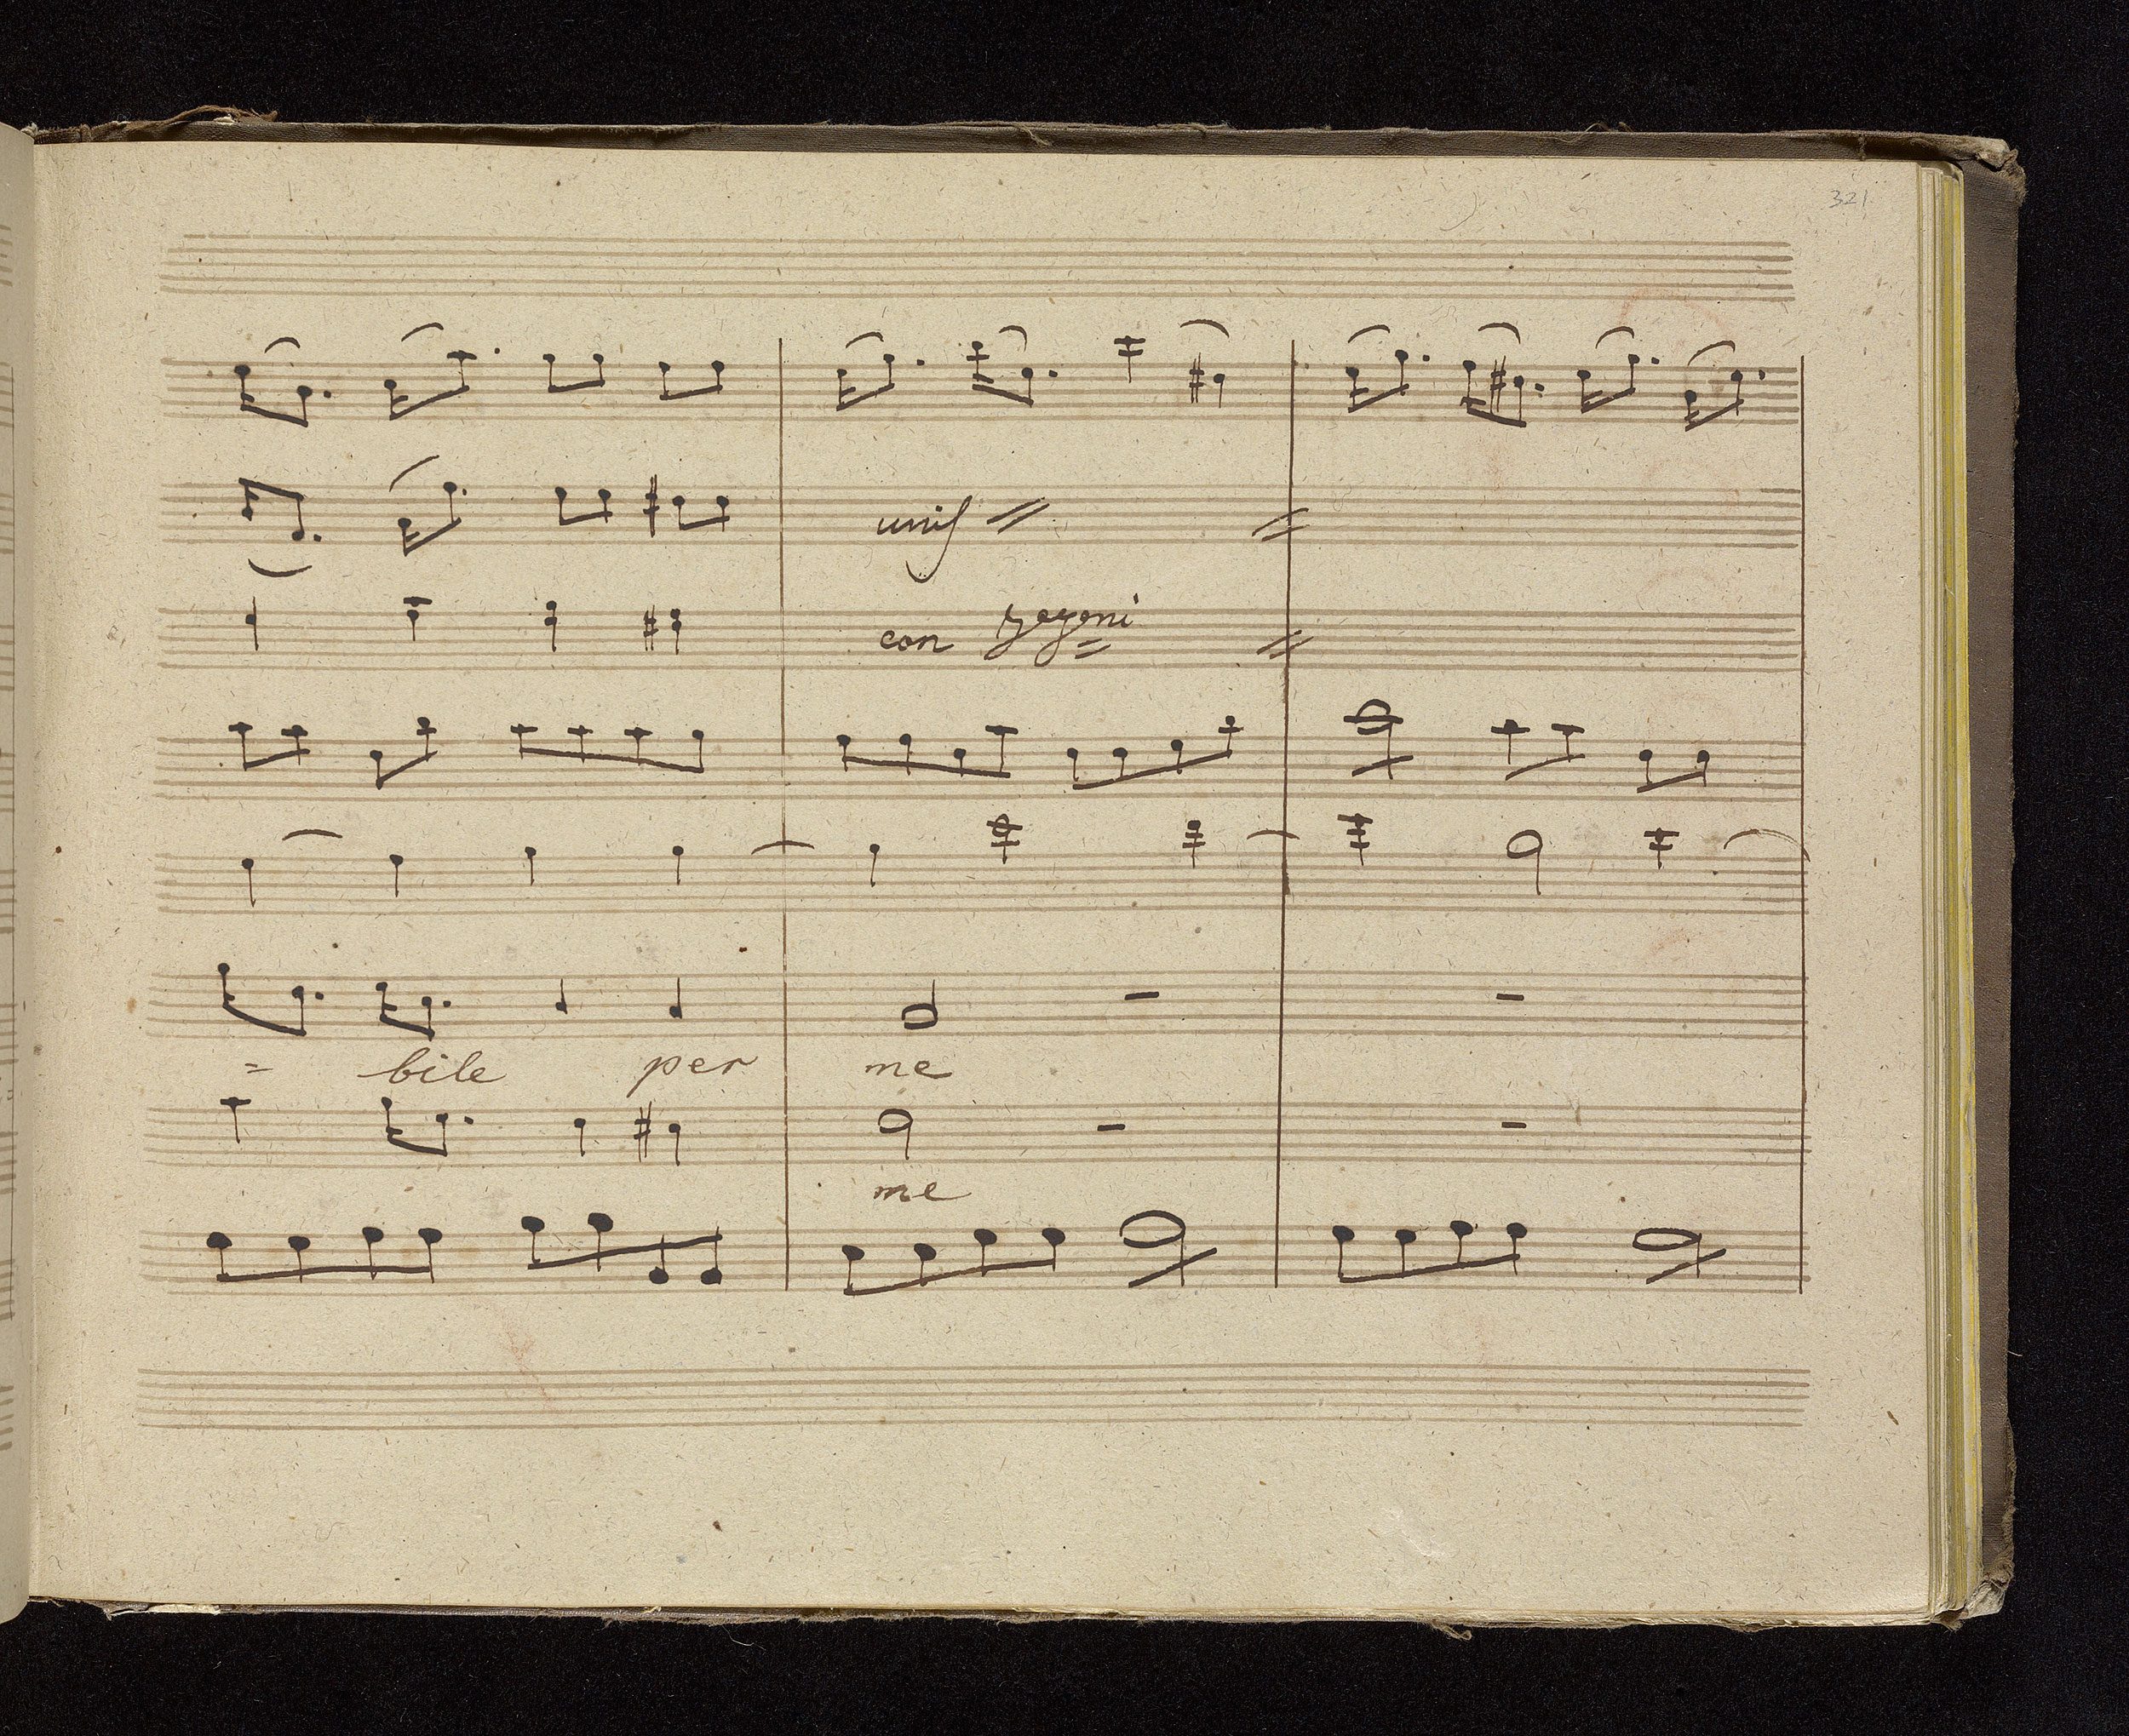 321
unis
con
= bile per me
me